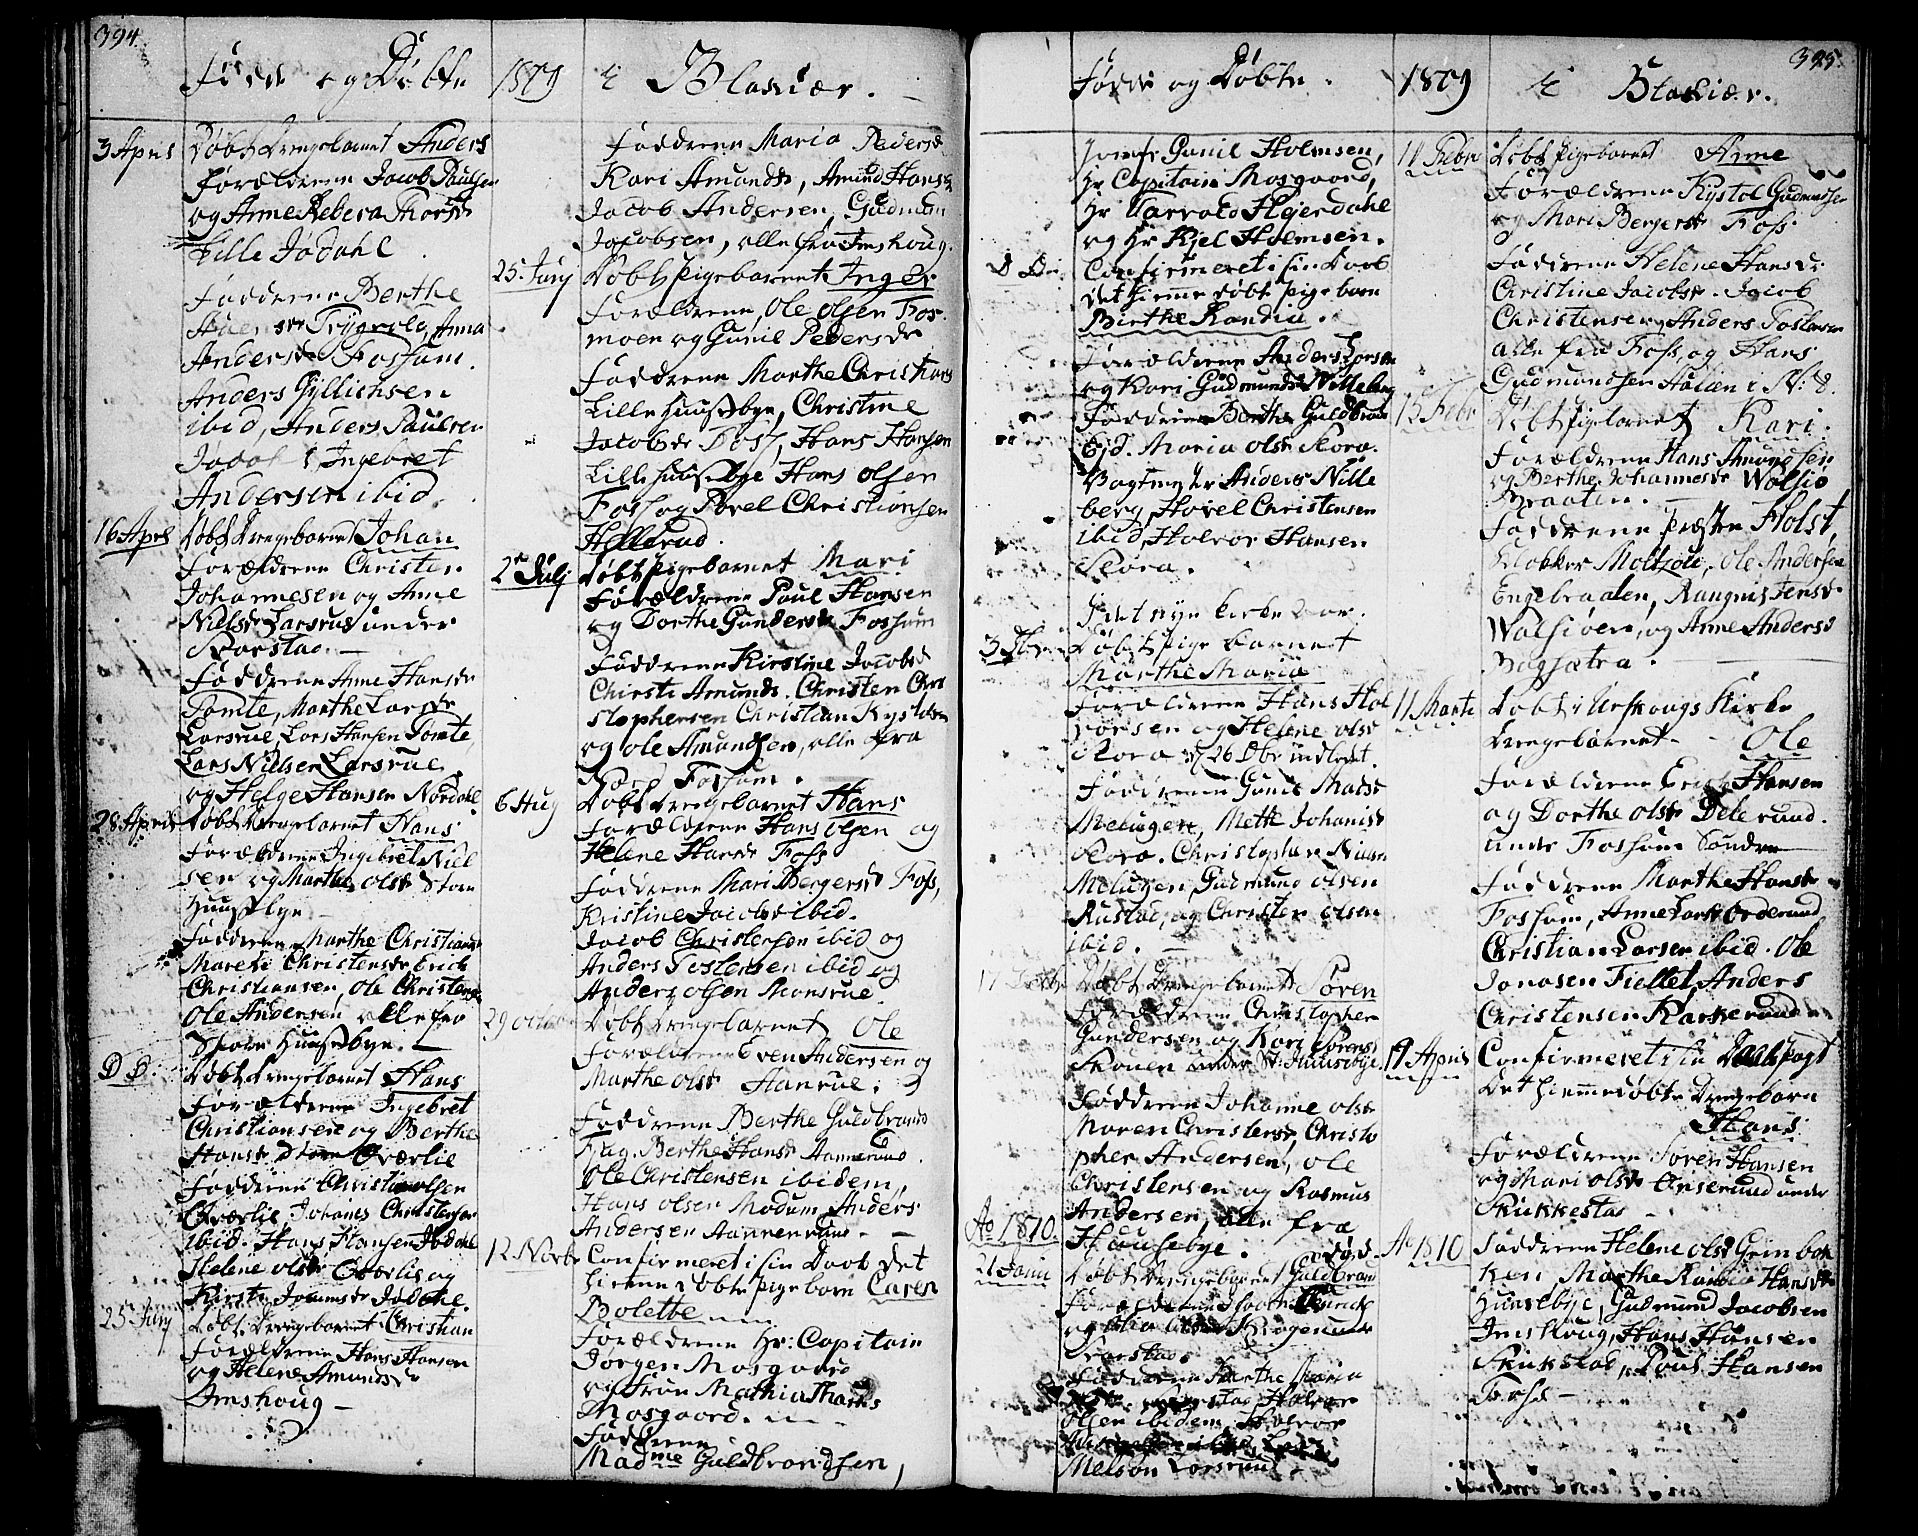 394.
Fødde og Døbte 1809 i Blakiær.
3 April Døbt Drengebarnet Anders
Forældrene Jacob Paulsen
og Anne Rebeca Thorsdr
Lille Jødahl
Faddrene Berthe
Trÿgsla, Anna
Andersdr Fossum.
Anders Gÿllichsen
ibid, Anders Paulsen
Jødal, Ingebret
Andersen ibid.
16 April Døbt Drengebarnet Johan
Forældrene Christen
Johannesen og Anne
Nielsdr Larsrud under
Rorstad.
Faddrene Anne Hansdr
Tomte, Marthe Larsdr
Larsrue, Lars Hansen Tomte,
Lars Nielsen Larsrue
og Helge Hansen Nordahl
28 April Døbt Drengebarnet Hans
Forældrene Ingebret Niel
sen og Marthe olsdr Store
Huusebye
Faddrene Marthe Christiansdr
Marethe Christensdr Erich
Christiansen, Ole Christensen
Ole Andersen alle fra
Store Huusebye.
D D. Døbt Drengebarnet Hans
Forældrene Ingebret
Christiansen og Berthe
Hansdr Store Qværlie
Faddrene Christian olsen
Qværlie Johanes Christensen
ibid. Hans Hansen Jødahl
Helene olsdr Qverlie og
Kirsti Jonsdr Jødahl.
25 Juny Døbt Drengebarnet Christian
Forældrene Hans Hansen
og Helene Amundsdr
Imshoug
Faddrene Maria Pedersdr
Kari Amundsdr, Amund Hansen
Jacob Andersen, Gudmun
Jacobsen, alle fra Imshoug.
25. Juny Døbt Pigebarnet Inger
Forældrene, Ole Olsen Fos
moen og Gunil Pedersdr
Faddrene Marthe Christians
Lille Huusebye, Christine
Jacobsdr Foss, Hans Hansen
Lille Huusebye Hans Olsen
Foss og Povel Christiansen
Hellerud.
2n Julj Døbt Pigebarnet Mari
Forældrene Paul Hansen
og Dorthe Gundersdr Fossum
Faddrene Kirstine Jacobsd
Chirsti Amunds. Christen Chri
stophersen Christian Kystolsen
og Ole Amundsen, alle fra
Nord Fossum.
6 Aug Døbt Drengebarnet Hans
Forældrene Hans Olsen og
Helene Hansdr Foss
Faddrene Mari Bergersd Foss,
Kristine Jacobsdr ibid.
Jacob Christensen ibid og
Anders Tostensen ibid og
Anders Olsen Monsrue.
29 octob Døbt Drengebarnet Ole
Forældrene Even Andersen og
Marthe olsdr Aanrue.
Faddrene Berthe Guldbrand
Hag. Berthe Hansdr Aannerund.
Ole Christensen ibidem,
Hans olsen Modum Anders
Andersen Aannerund
12 Novbr Confirmeret i sin Daab det
hiemmedøbte Pigebarn Caren
Bolette
Forældrene Hr: Capitain
Jørgen Mosgaard
og Frue Mathia
Mosgaard.
Faddrene
Madme Guldbrandsen,
395.
Fødde og Døbte 1809 i Blakiær.
Jomfr Gunil Holmsen,
Hr Capitain Mosgaard,
Hr Harrald Hejerdahl
og Hr Kjel Holmsen.
D Di. Confirmeret i sin Daab
det hiemme døbte Pigebarn
Birthe Randia.
Forældrene Anders Larsen
og Kari Gudmundsdr Nilleberg
Faddrene Berthe Guldbrandsd
Ejd. Maria olsdr Kora.
Vagtmester Anders Nille
berg, Hovel Christensen
ibid, Halvor Hansen
Kora.
I det nye Kirke Aar.
3 Dbr Døbt Pige barnet
Marthe Maria
Forældrene Hans Hal
vorsen og Helene olsdr
Kora d. 26 Obr indledet.
Faddrene Gunil Madsdr
Melugen, Mette Johanisd
Kora. Christopher Nielsen
Melugen, Gudmund olsen
Rustad, og Christen olsen
ibid.
17 Decbr Døbt Drengebarnet Søren
Forældrene Christopher
Gundersen og Kari Sørensdr
Skouen under St. Huusebye.
Faddrene Johanne olsdr
Maren Christensdr, Christo
pher Andersen, Ole
Christensen og Rasmus
Andersen, alle fra
Huusebye.
Ao 1810.
21 Janu Døbt Drengebarnet Guldbrand
Melson Larsrund
11 Febr Døbt Pigebarnet Anne
Forældrene Kystol Gudmundsen
og Mari Bergersdr Foss.
Faddrene Helene Hansdr
Christine Jacobsdr. Jacob
Christensen, Anders Tostensen
alle fra Foss, og Hans
Gudmundsen Hollen i N: S.
15 Febr Døbt Pigebarnet Kari.
Forældrene Hans Amundsen
og Berthe Johannesdr Walsiø
Braaten.
Faddrene Præsten Holst,
Klokker Moltzau, Ole Andersen
Engebraaten, Raugnil Jensdr
Walsiøen, og Anne Andersd
Bagsætra.
11 Marti Døbt i Urskougs Kirke
Drengebarnet Ole
Forældrene Erich Hansen
og Dorthe olsdr Delerund.
under Fossum Søndre
Faddrene Marthe Hansdr
Fossum, Anne Larsdr Orderund
Christian Larsen ibid. Ole
Jonasen Fiellet, Anders
Christensen Karterund
19 April Confirmeret i sin Daabspagt
det hiemmedøbte Drengebarn
Hans
Forældrene Søren Hansen
og Mari olsdr Ønserund under
Rikkestad
Ao 1810 Faddrene Helene olsd Grinbak
ken, Marthe Maria Hansdr
Huusebye, Gudmund Jacobsen
Imshoug, Hans Hansen
Rikkstad, Poul Hansen
Foss